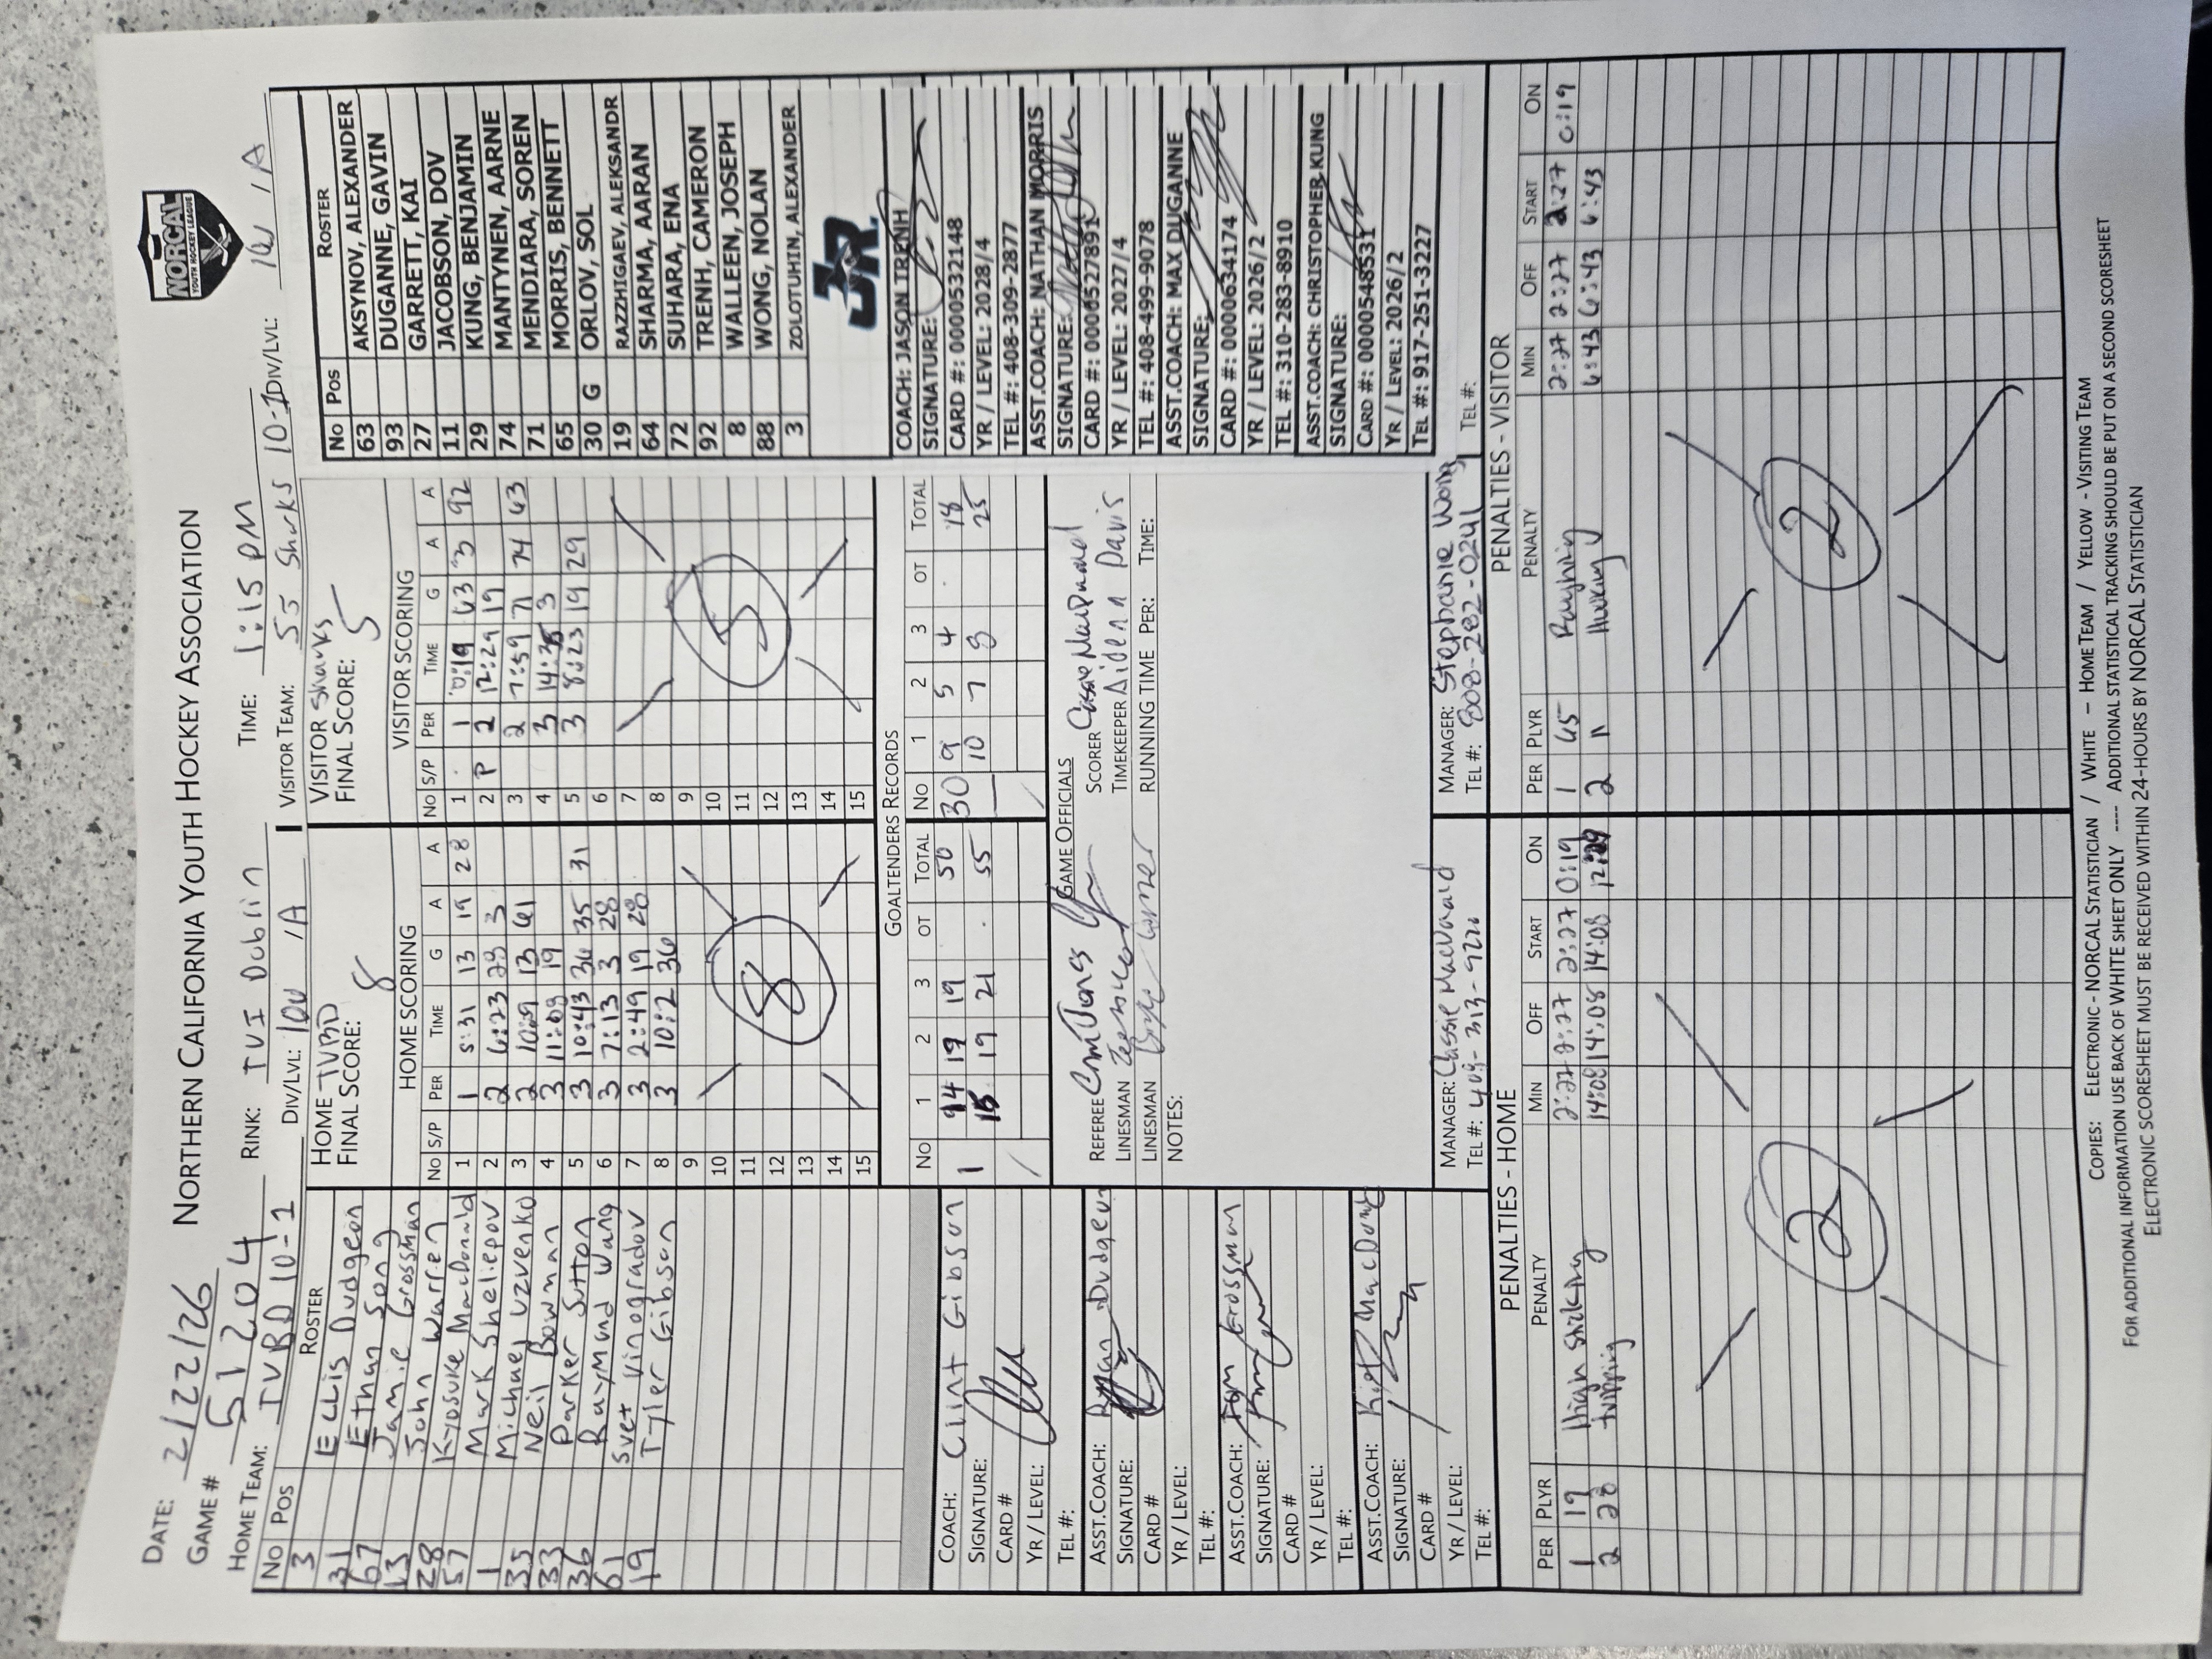 NORCAL
YOUTH HOCKEY LEAGUE
DATE: 2/22/26 NORTHERN CALIFORNIA YOUTH HOCKEY ASSOCIATION
GAME # 51204 RINK: TVI Dublin TIME: 1:15 PM
HOME TEAM: TVBD 10-1 DIV/LVL: 10U / A VISITOR TEAM: SJ Sharks 10-1 DIV/LVL: 10U / A
No Pos ROSTER
3 Ellis Dudgeon
31 Ethan Song
67 Jamie Grossman
13 John Warren
28 Kyosuke MacDonald
57 Mark Sheliepov
1 Michael Uzvenko
35 Neil Bowman
33 Parker Sutton
36 Raymond Wang
61 Svet Vinogradov
19 Tyler Gibson
HOME TVBD
FINAL SCORE: 8
HOME SCORING
No S/P PER TIME G A A
1 1 5:31 13 19 28
2 2 6:23 28 3
3 2 10:9 13 61
4 3 11:09 19
5 3 10:43 36 35 31
6 3 7:13 3 28
7 3 2:49 19 28
8 3 10:2 36
9
10
11
12
13
14
15
8
VISITOR Sharks
FINAL SCORE: 5
VISITOR SCORING
No S/P PER TIME G A A
1 1 0:19 63 3 92
2 P 2 12:29 19
3 2 7:59 71 74 63
4 3 3
5 3 8:23 19 29
6
7
8
9
10
11
12
13
14
15
5
No Pos ROSTER
63 AKSYNOV, ALEXANDER
93 DUGANNE, GAVIN
27 GARRETT, KAI
11 JACOBSON, DOV
29 KUNG, BENJAMIN
74 MANTYNEN, AARNE
71 MENDIARA, SOREN
65 MORRIS, BENNETT
30 G ORLOV, SOL
19 RAZZHIGAEV, ALEKSANDR
64 SHARMA, AARAN
72 SUHARA, ENA
92 TRENH, CAMERON
8 WALLEEN, JOSEPH
88 WONG, NOLAN
3 ZOLOTUHIN, ALEXANDER
JR.
GOALTENDERS RECORDS
No 1 2 3 OT TOTAL No 1 2 3 OT TOTAL
1 19 19 50 30 9 5 4 18
19 21 55 10 7 8 25
COACH: Clint Gibson
SIGNATURE:
CARD #
YR / LEVEL:
TEL #:
ASST.COACH: Dudgeon
SIGNATURE:
CARD #
YR / LEVEL:
TEL #:
ASST.COACH: Tom Grossman
SIGNATURE:
CARD #
YR / LEVEL:
TEL #:
ASST.COACH:
SIGNATURE:
CARD #
YR / LEVEL:
TEL #:
GAME OFFICIALS
REFEREE SCORER Cassie MacDonald
LINESMAN TIMEKEEPER Aiden Davis
LINESMAN RUNNING TIME PER: TIME:
NOTES:
COACH: JASON TRENH
SIGNATURE:
CARD #: 0000532148
YR / LEVEL: 2028/4
TEL #: 408-309-2877
ASST.COACH: NATHAN MORRIS
SIGNATURE:
CARD #: 0000527891
YR / LEVEL: 2027/4
TEL #: 408-499-9078
ASST.COACH: MAX DUGANNE
SIGNATURE:
CARD #: 0000634174
YR / LEVEL: 2026/2
TEL #: 310-283-8910
ASST.COACH: CHRISTOPHER KUNG
SIGNATURE:
CARD #: 0000548531
YR / LEVEL: 2026/2
TEL #: 917-251-3227
MANAGER: Cassie MacDonald MANAGER: Stephanie Wong
TEL #: TEL #: 808-282-0241 TEL #:
PENALTIES - HOME
PER PLYR PENALTY MIN OFF START ON
1 19 High Sticking 2:27 2:27 2:27 0:19
2 28 tripping 14:08 14:08 14:08
2
PENALTIES - VISITOR
PER PLYR PENALTY MIN OFF START ON
1 65 Roughing 2:27 2:27 2:27 0:19
2 11 Hooking 6:43 6:43 6:43
2
COPIES: ELECTRONIC - NORCAL STATISTICIAN / WHITE – HOME TEAM / YELLOW - VISITING TEAM
FOR ADDITIONAL INFORMATION USE BACK OF WHITE SHEET ONLY ---- ADDITIONAL STATISTICAL TRACKING SHOULD BE PUT ON A SECOND SCORESHEET
ELECTRONIC SCORESHEET MUST BE RECEIVED WITHIN 24-HOURS BY NORCAL STATISTICIAN